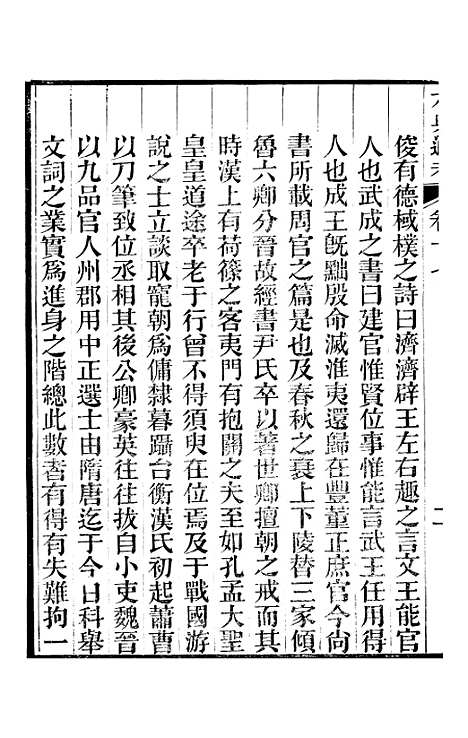 卷十七
二
俊有德棫樸之詩曰濟濟辟王左右趣之言文王能官
人也武成之書曰建官惟賢位事惟能言武王任用得
人也成王旣黜殷命滅淮夷還歸在豐董正庶官今尚
書所載周官之篇是也及春秋之衰上下陵替三家傾
魯六卿分晉故經書尹氏卒以著世卿擅朝之戒而其
時漢上有荷篠之客夷門有抱關之夫至如孔孟大聖
皇皇道途卒老于行曾不得須臾在位焉及于戰國游
說之士立談取寵朝爲傭隸暮躡台衡漢氏初起蕭曹
以刀筆致位丞相其後公卿豪英往往拔自小吏魏晉
以九品官人州郡用中正選士由隋唐迄于今日科舉
文詞之業實爲進身之階總此數者有得有失難拘一